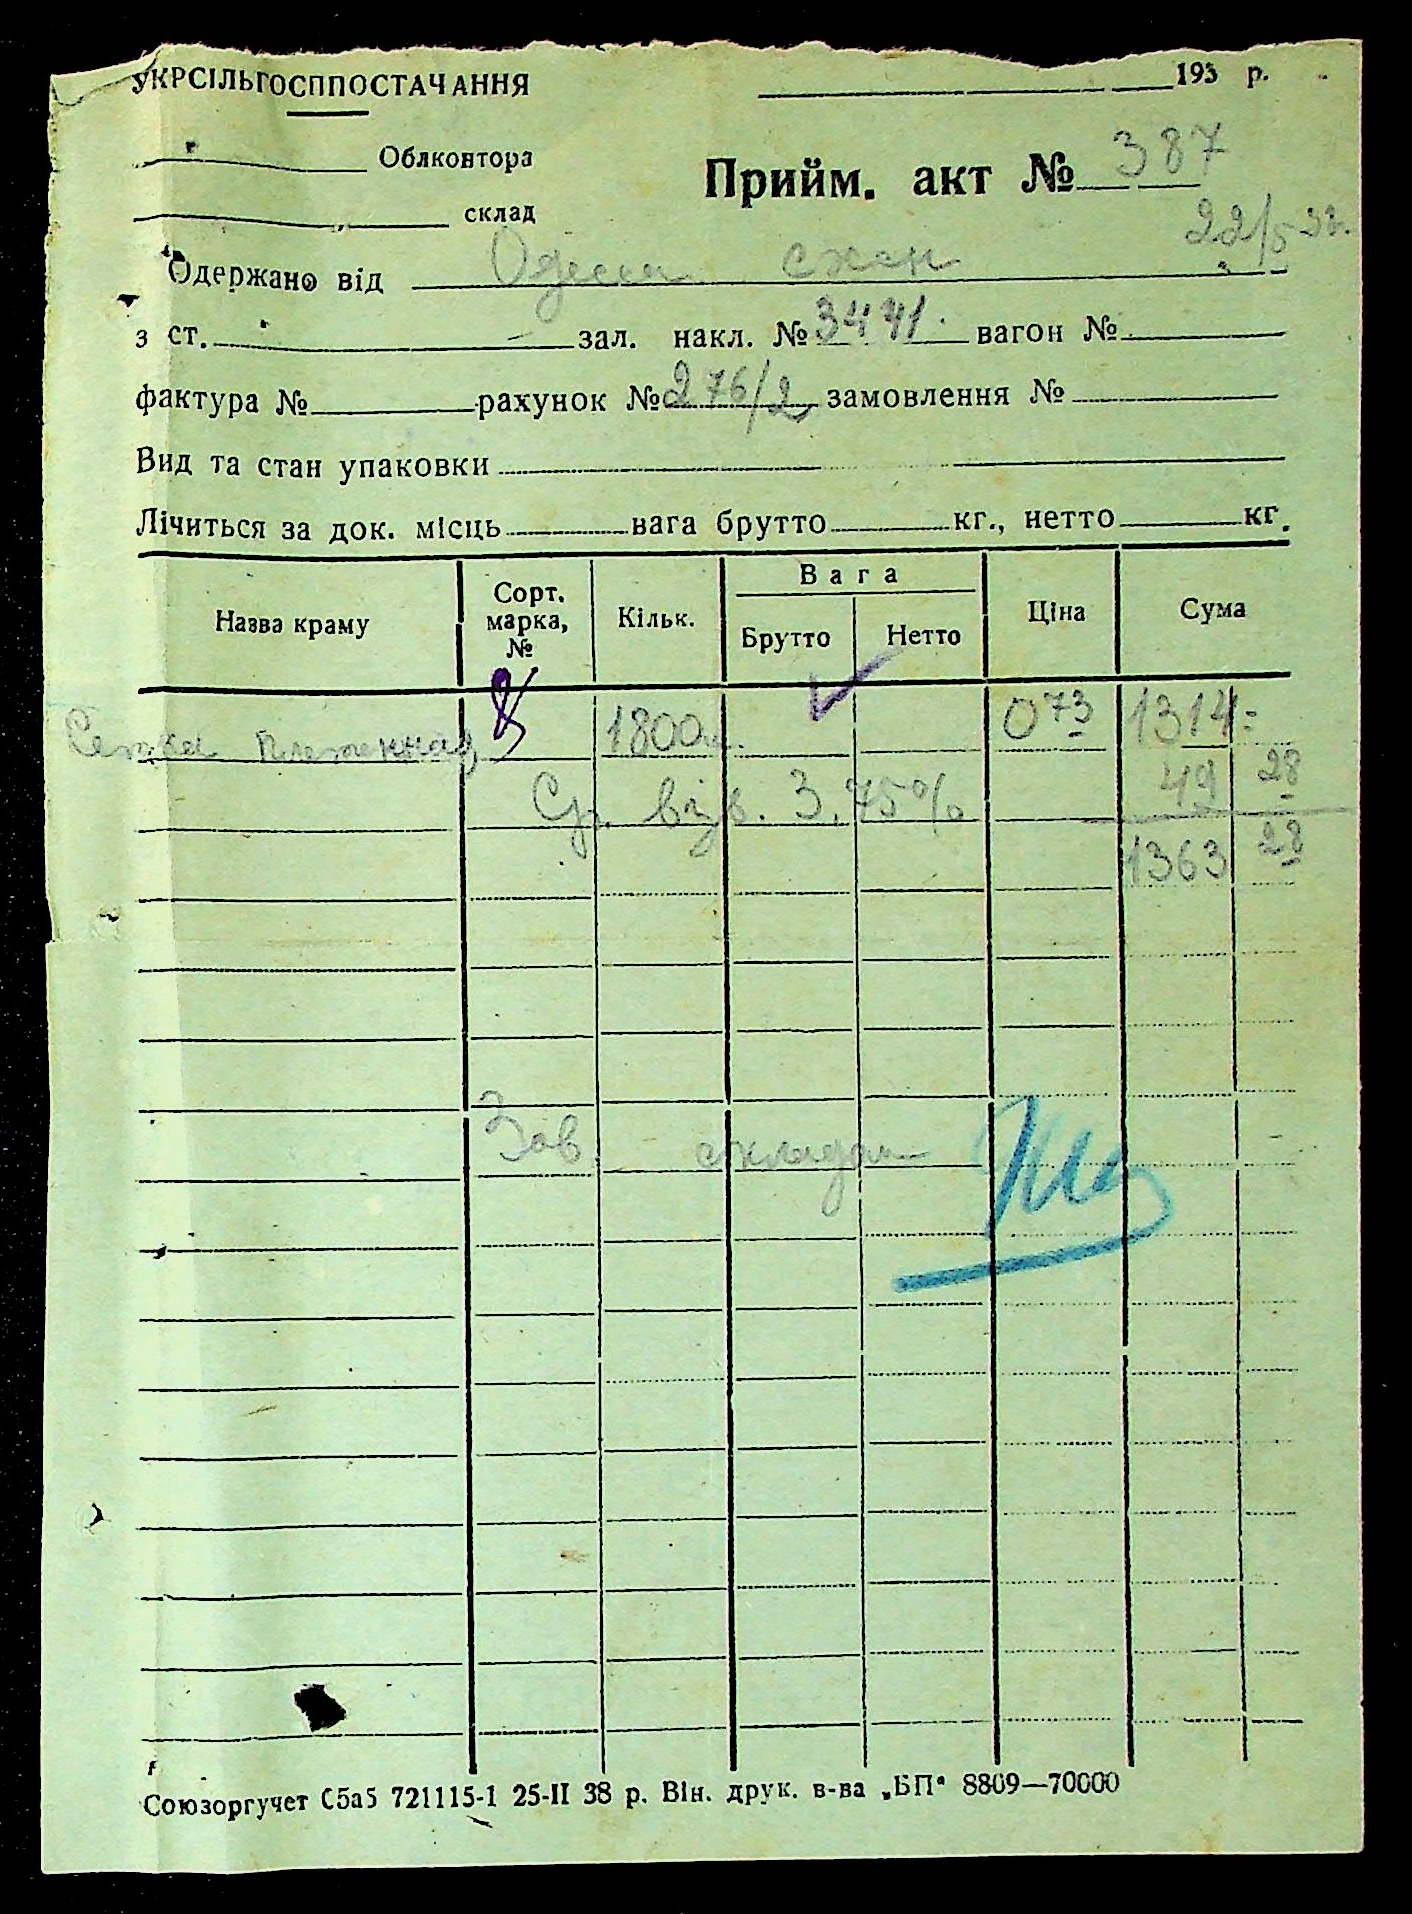 УКРСІЛЬГОСППОСТАЧАННЯ
193 р.
Облконтора
Прийм. акт № 387
склад
22/5
Одержано від Одесса
з ст. зал. накл. № 3471 вагон №
фактура № рахунок № 276/2 замовлення №
Вид та стан упаковки
Лічиться за док. місць вага брутто кг., нетто кг.
Назва краму Сорт. марка, № Кільк. Вага Брутто Нетто Ціна Сума
Сетка плетенная 1800 0 73 1314=
3,75% 49 28
1363 28
Зав складом
Союзоргучет С5а5 721115-1 25-II 38 р. Він. друк. в-ва „БП“ 8809—70000